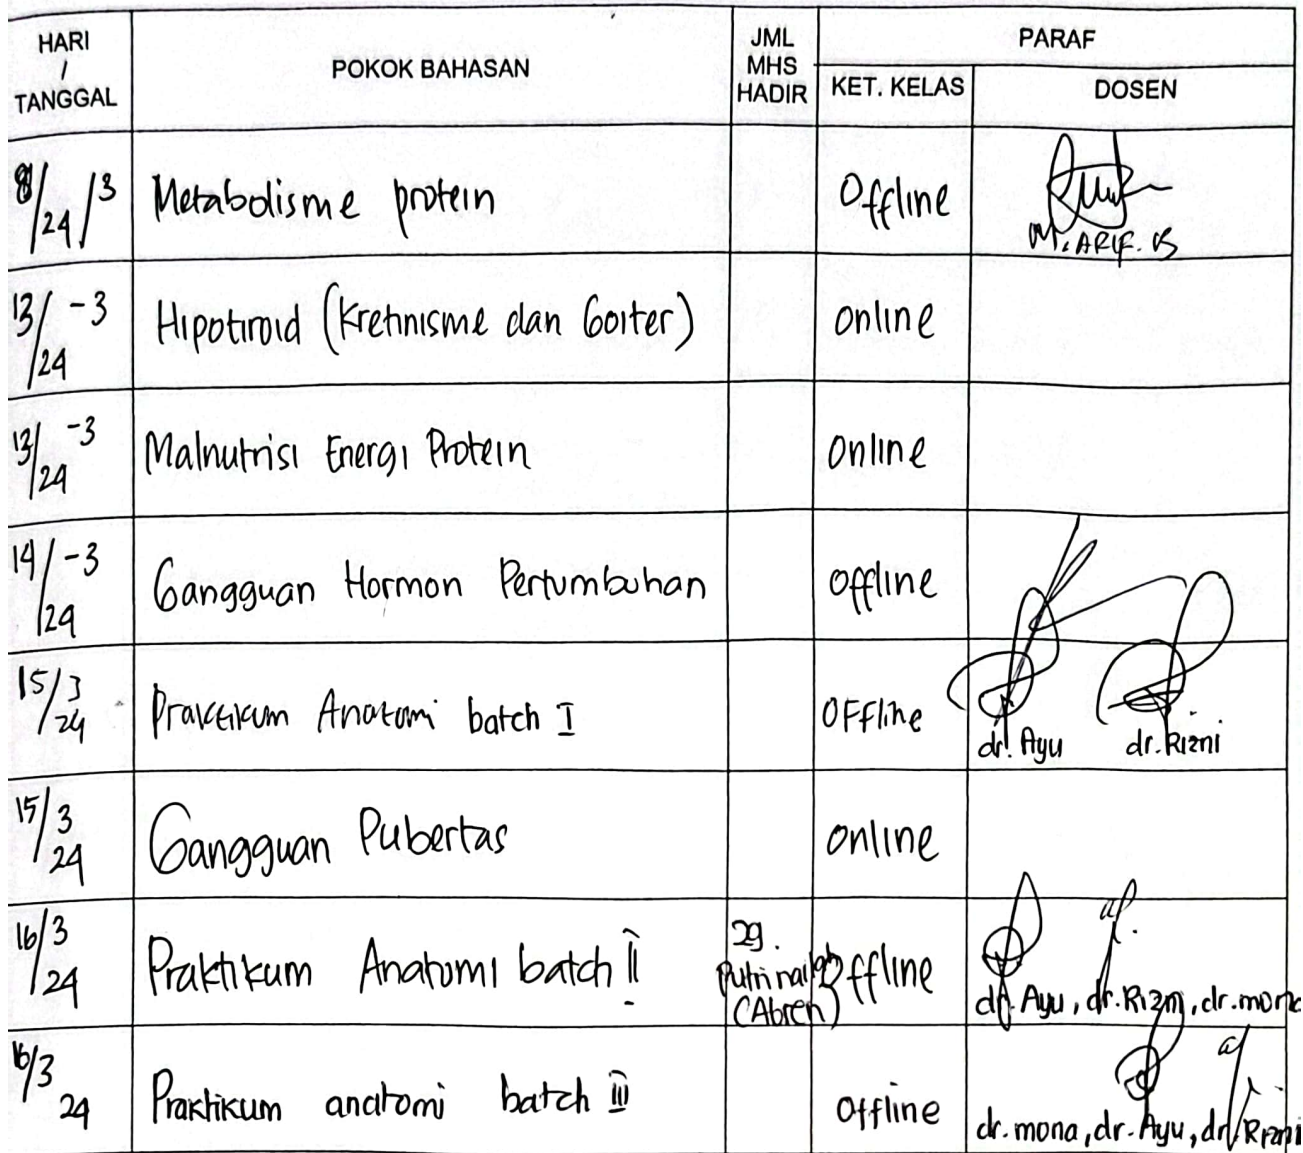 HARI / TANGGAL | POKOK BAHASAN | JML MHS HADIR | PARAF
KET. KELAS | DOSEN
8/24/3 | Metabolisme protein | Offline | M. ARIF. B
13/-3/24 | Hipotiroid (Kretinisme dan Goiter) | online
13/-3/24 | Malnutrisi Energi Protein | Online
14/-3/24 | Gangguan Hormon Pertumbuhan | Offline
15/3/24 | Praktikum Anatomi batch I | OFFline | dr. Ayu dr. Rizni
15/3/24 | Gangguan Pubertas | Online
16/3/24 | Praktikum Anatomi batch II | 29. Putri nailah (Absen) | Offline | dr. Ayu, dr. Rizni, dr. mona
16/3/24 | Praktikum anatomi batch III | Offline | dr. mona, dr. Ayu, dr. Rizni